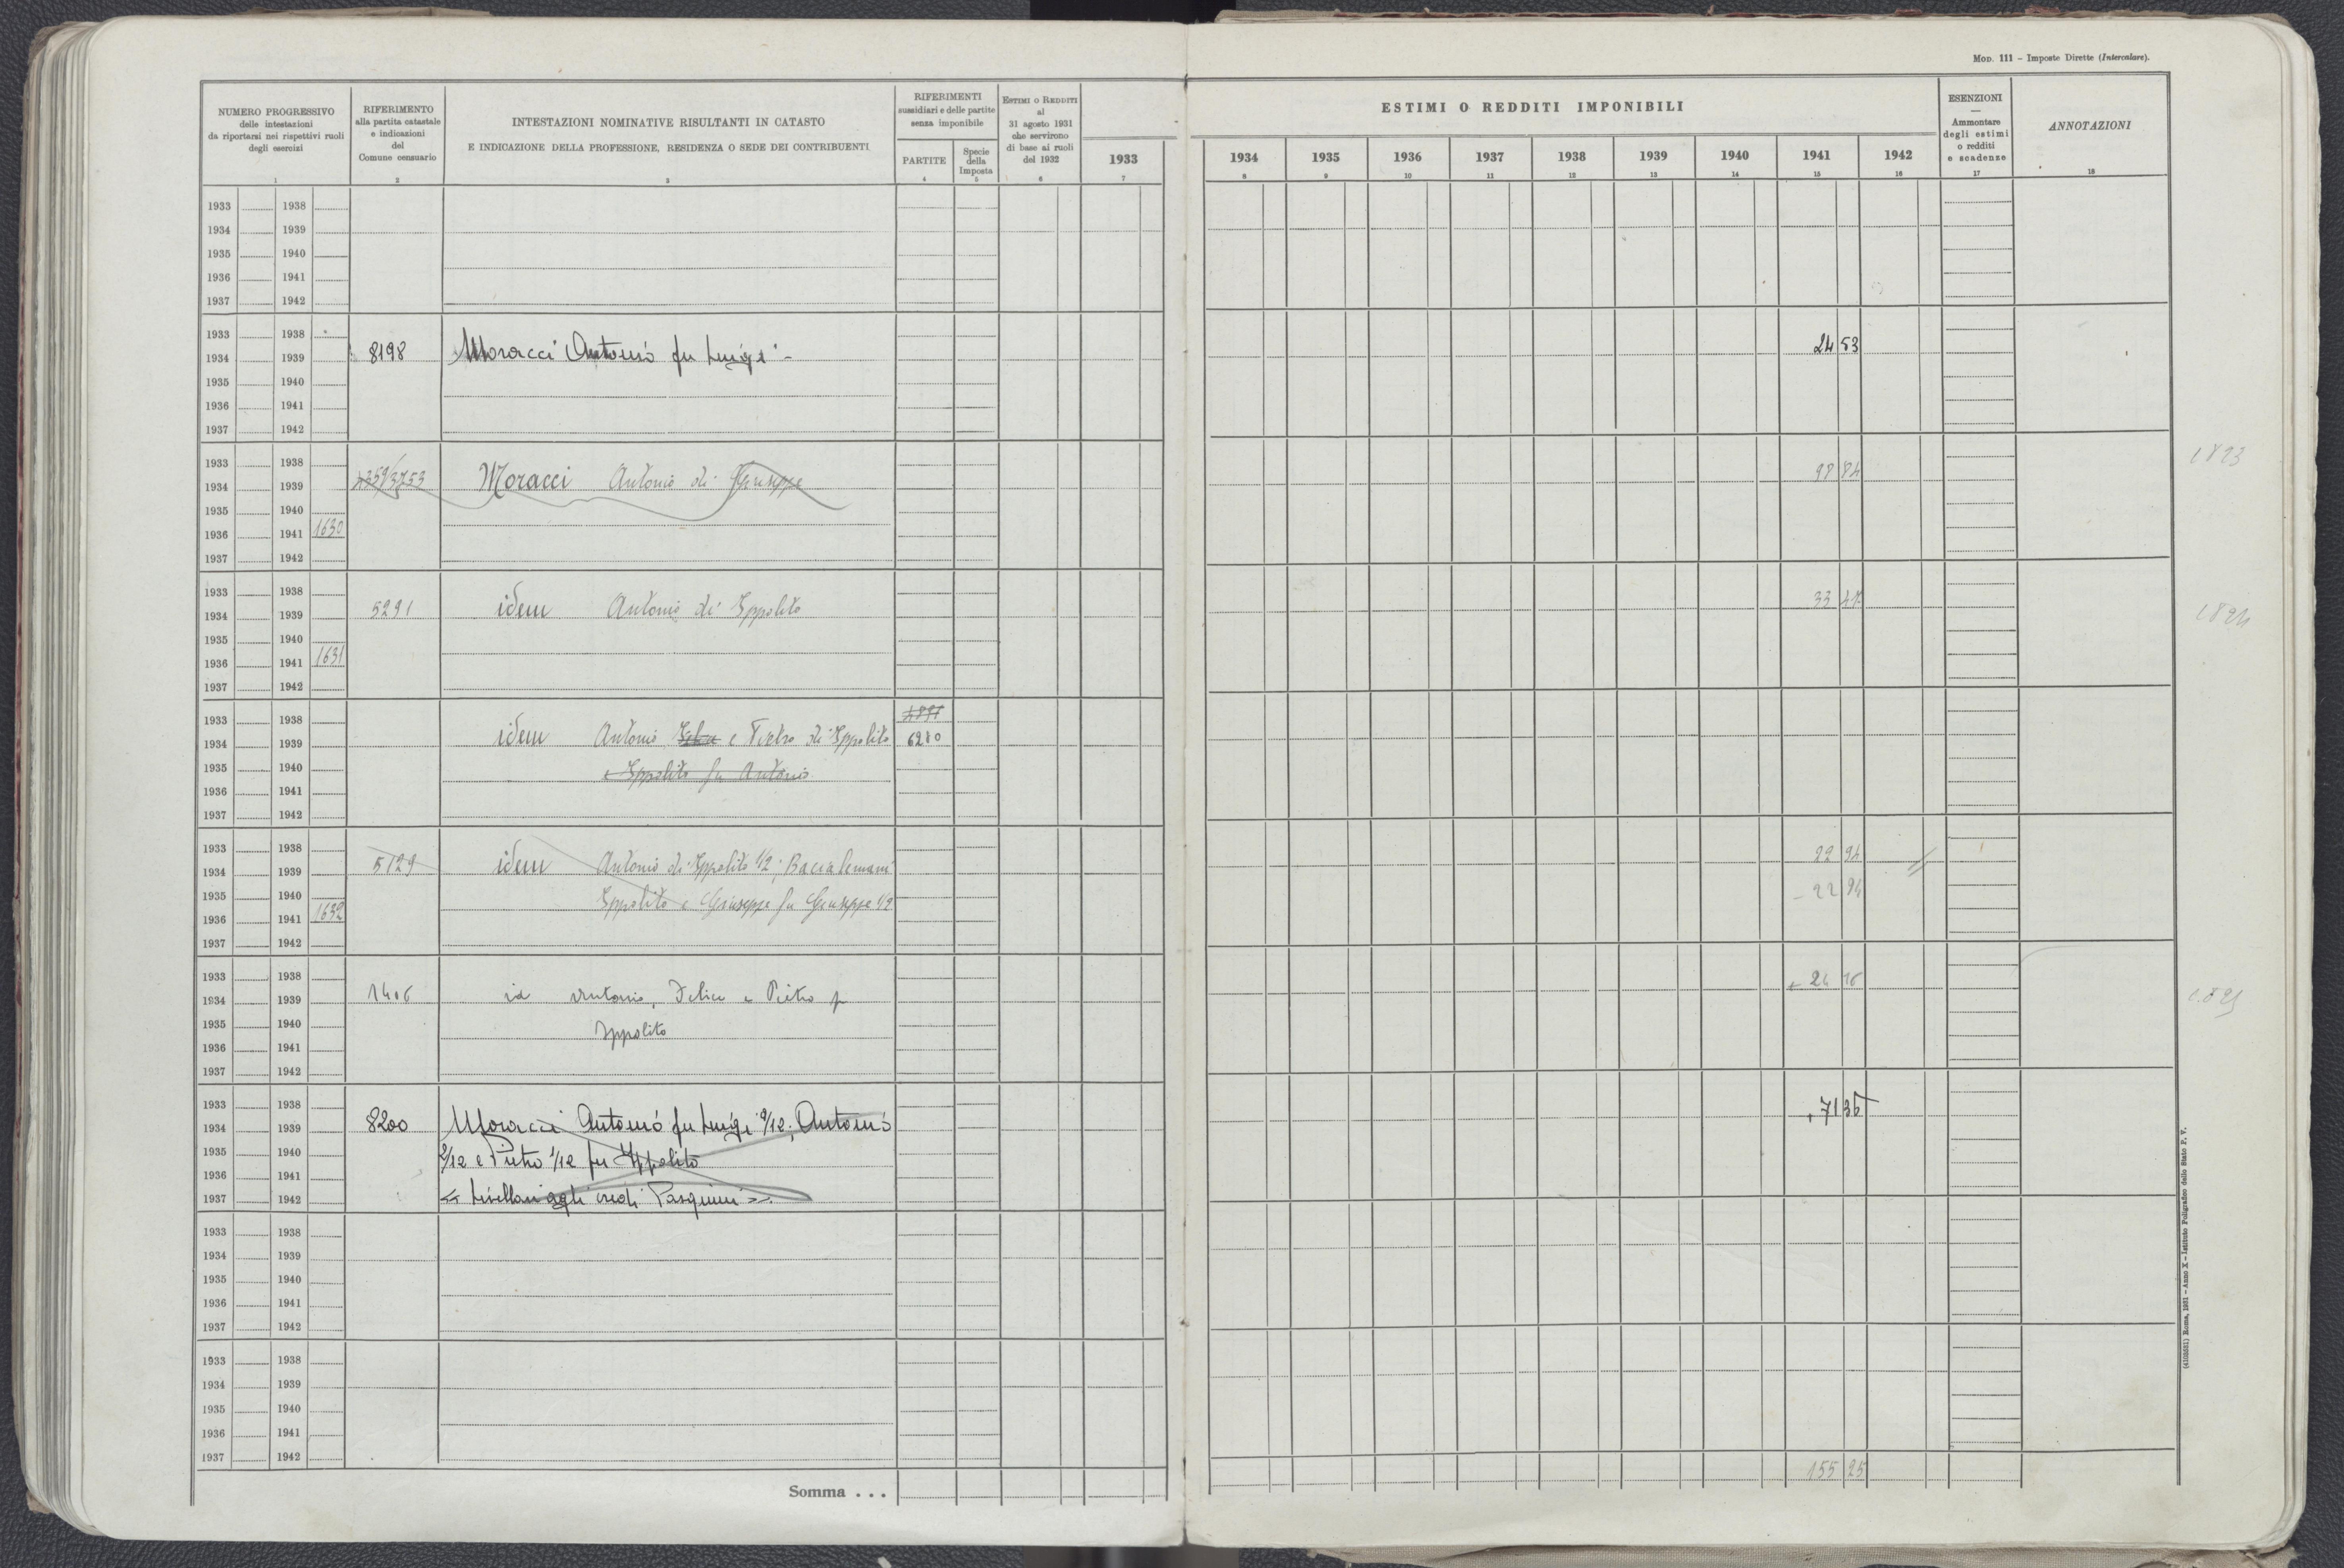 MOD. 111 – Imposte Dirette (Intercalare).
NUMERO PROGRESSIVO
delle intestazioni
da riportarsi nei rispettivi ruoli
degli esercizi
RIFERIMENTO
alla partita catastale
e indicazioni
del
Comune censuario
INTESTAZIONI NOMINATIVE RISULTANTI IN CATASTO
E INDICAZIONE DELLA PROFESSIONE, RESIDENZA O SEDE DEI CONTRIBUENTI
RIFERIMENTI
sussidiari e delle partite
senza imponibile
PARTITE
Specie
della
Imposta
ESTIMI O REDDITI
al
31 agosto 1931
che servirono
di base ai ruoli
del 1932
1933
ESTIMI O REDDITI IMPONIBILI
1934 1935 1936 1937 1938 1939 1940 1941 1942
ESENZIONI
—
Ammontare
degli estimi
o redditi
e scadenze
ANNOTAZIONI
1 2 3 4 5 6 7 8 9 10 11 12 13 14 15 16 17 18
1933 1938
1934 1939
1935 1940
1936 1941
1937 1942
1933 1938
1934 1939 8198 Moracci Antonio fu Luigi - 24 53
1935 1940
1936 1941
1937 1942
1933 1938
1934 1939 Moracci Antonio di Giuseppe 98 84
1935 1940
1936 1941 1630
1937 1942
1933 1938
1934 1939 5291 idem Antonio di Ippolito
1935 1940
1936 1941 1631
1937 1942
1933 1938
1934 1939 idem Antonio e Pietro di Ippolito 6280
1935 1940 e Ippolito fu Antonio
1936 1941
1937 1942
1933 1938
1934 1939 5129 idem Antonio di Ippolito 1/2; Bacialemani 22 94
1935 1940 Ippolito e Giuseppe fu Giuseppe 1/2 - 22 94
1936 1941 1632
1937 1942
1933 1938
1934 1939 1406 id Antonio, Felice e Pietro fu
1935 1940 Ippolito
1936 1941
1937 1942
1933 1938
1934 1939 8200 Moracci Antonio fu Luigi 9/12; Antonio
1935 1940 2/12 e Pietro 1/12 fu Ippolito
1936 1941
1937 1942 « Livellari agli eredi Pasquini ».
1933 1938
1934 1939
1935 1940
1936 1941
1937 1942
1933 1938
1934 1939
1935 1940
1936 1941
1937 1942
Somma . . . 155 25
(4103651) Roma, 1931 – Anno X – Istituto Poligrafico dello Stato P. V.